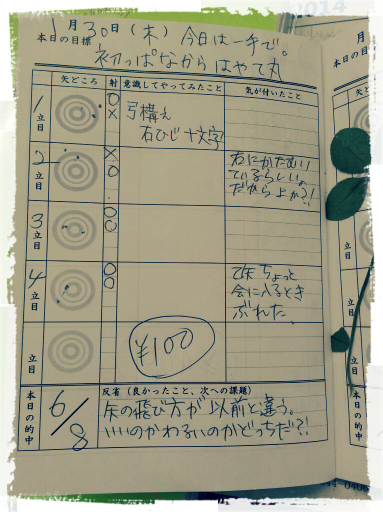 1月30日(木) 今日は一手で。
本日の目標
初っぱなからはやて丸
矢どころ 射 意識してやってみたこと 気が付いたこと
1立目 ○× 弓構え
右ひじ十文字
2立目 ×○ 右にかたむい
ているらしい。
だからよか?!
3立目 ○○
4立目 ○○ 乙矢ちょっと
会に入るとき
ぶれた。
立目 ¥100
本日の的中 6/8
反省(良かったこと、次への課題)
矢の飛び方が以前と違う。
いいのかわるいのかどっちだ?!
2014